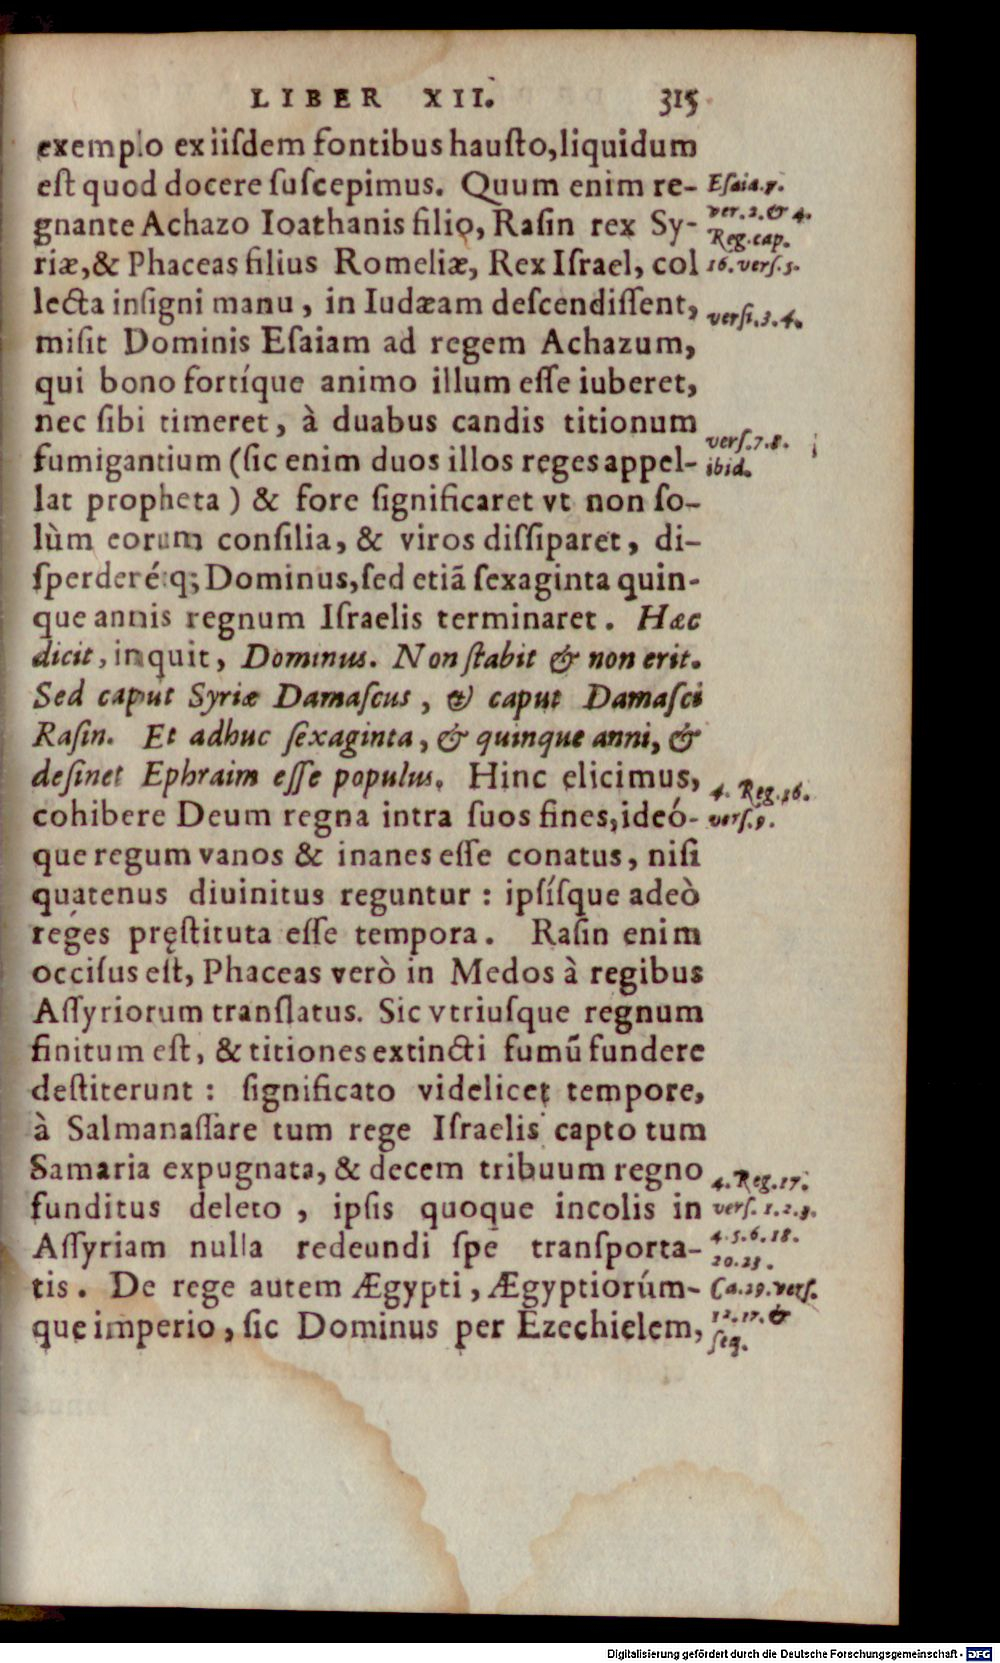 LIBER XII. 315
exemplo ex iiſdem fontibus hauſto, liquidum
eſt quod docere ſuſcepimus. Quum enim re-
gnante Achazo Ioathanis filio, Raſin rex Sy-
riæ, & Phaceas filius Romeliæ, Rex Iſrael, col
lecta inſigni manu, in Iudæam deſcendiſſent,
miſit Dominis Eſaiam ad regem Achazum,
qui bono fortíque animo illum eſſe iuberet,
nec ſibi timeret, à duabus candis titionum
fumigantium (ſic enim duos illos reges appel-
lat propheta) & fore ſignificaret vt non ſo-
lùm eorum conſilia, & viros diſſiparet, di-
ſperderéq; Dominus, ſed etiã ſexaginta quin-
que annis regnum Iſraelis terminaret. Hæc
dicit, inquit, Dominus. Non ſtabit & non erit.
Sed caput Syriæ Damaſcus, & caput Damaſci
Raſin. Et adhuc ſexaginta, & quinque anni, &
deſinet Ephraim eſſe populus. Hinc elicimus,
cohibere Deum regna intra ſuos fines, ideó-
que regum vanos & inanes eſſe conatus, niſi
quatenus diuinitus reguntur : ipſíſque adeò
reges pręſtituta eſſe tempora. Raſin enim
occiſus eſt, Phaceas verò in Medos à regibus
Aſſyriorum tranſlatus. Sic vtriuſque regnum
finitum eſt, & titiones extincti fumũ fundere
deſtiterunt : ſignificato videlicet tempore,
à Salmanaſſare tum rege Iſraelis capto tum
Samaria expugnata, & decem tribuum regno
funditus deleto, ipſis quoque incolis in
Aſſyriam nulla redeundi ſpe tranſporta-
tis. De rege autem Ægypti, Ægyptiorúm-
que imperio, ſic Dominus per Ezechielem,
Eſaia.7.
ver.2.& 4.
Reg.cap.
16.verſ.5.
verſi.3.4.
verſ.7.8.
ibid.
4. Reg.16.
verſ.9.
4.Reg.17.
verſ.1.2.3.
4.5.6.18.
20.23.
Ca.29.verſ.
12.17.&
ſeq.
Digitalisierung gefördert durch die Deutsche Forschungsgemeinschaft - DFG